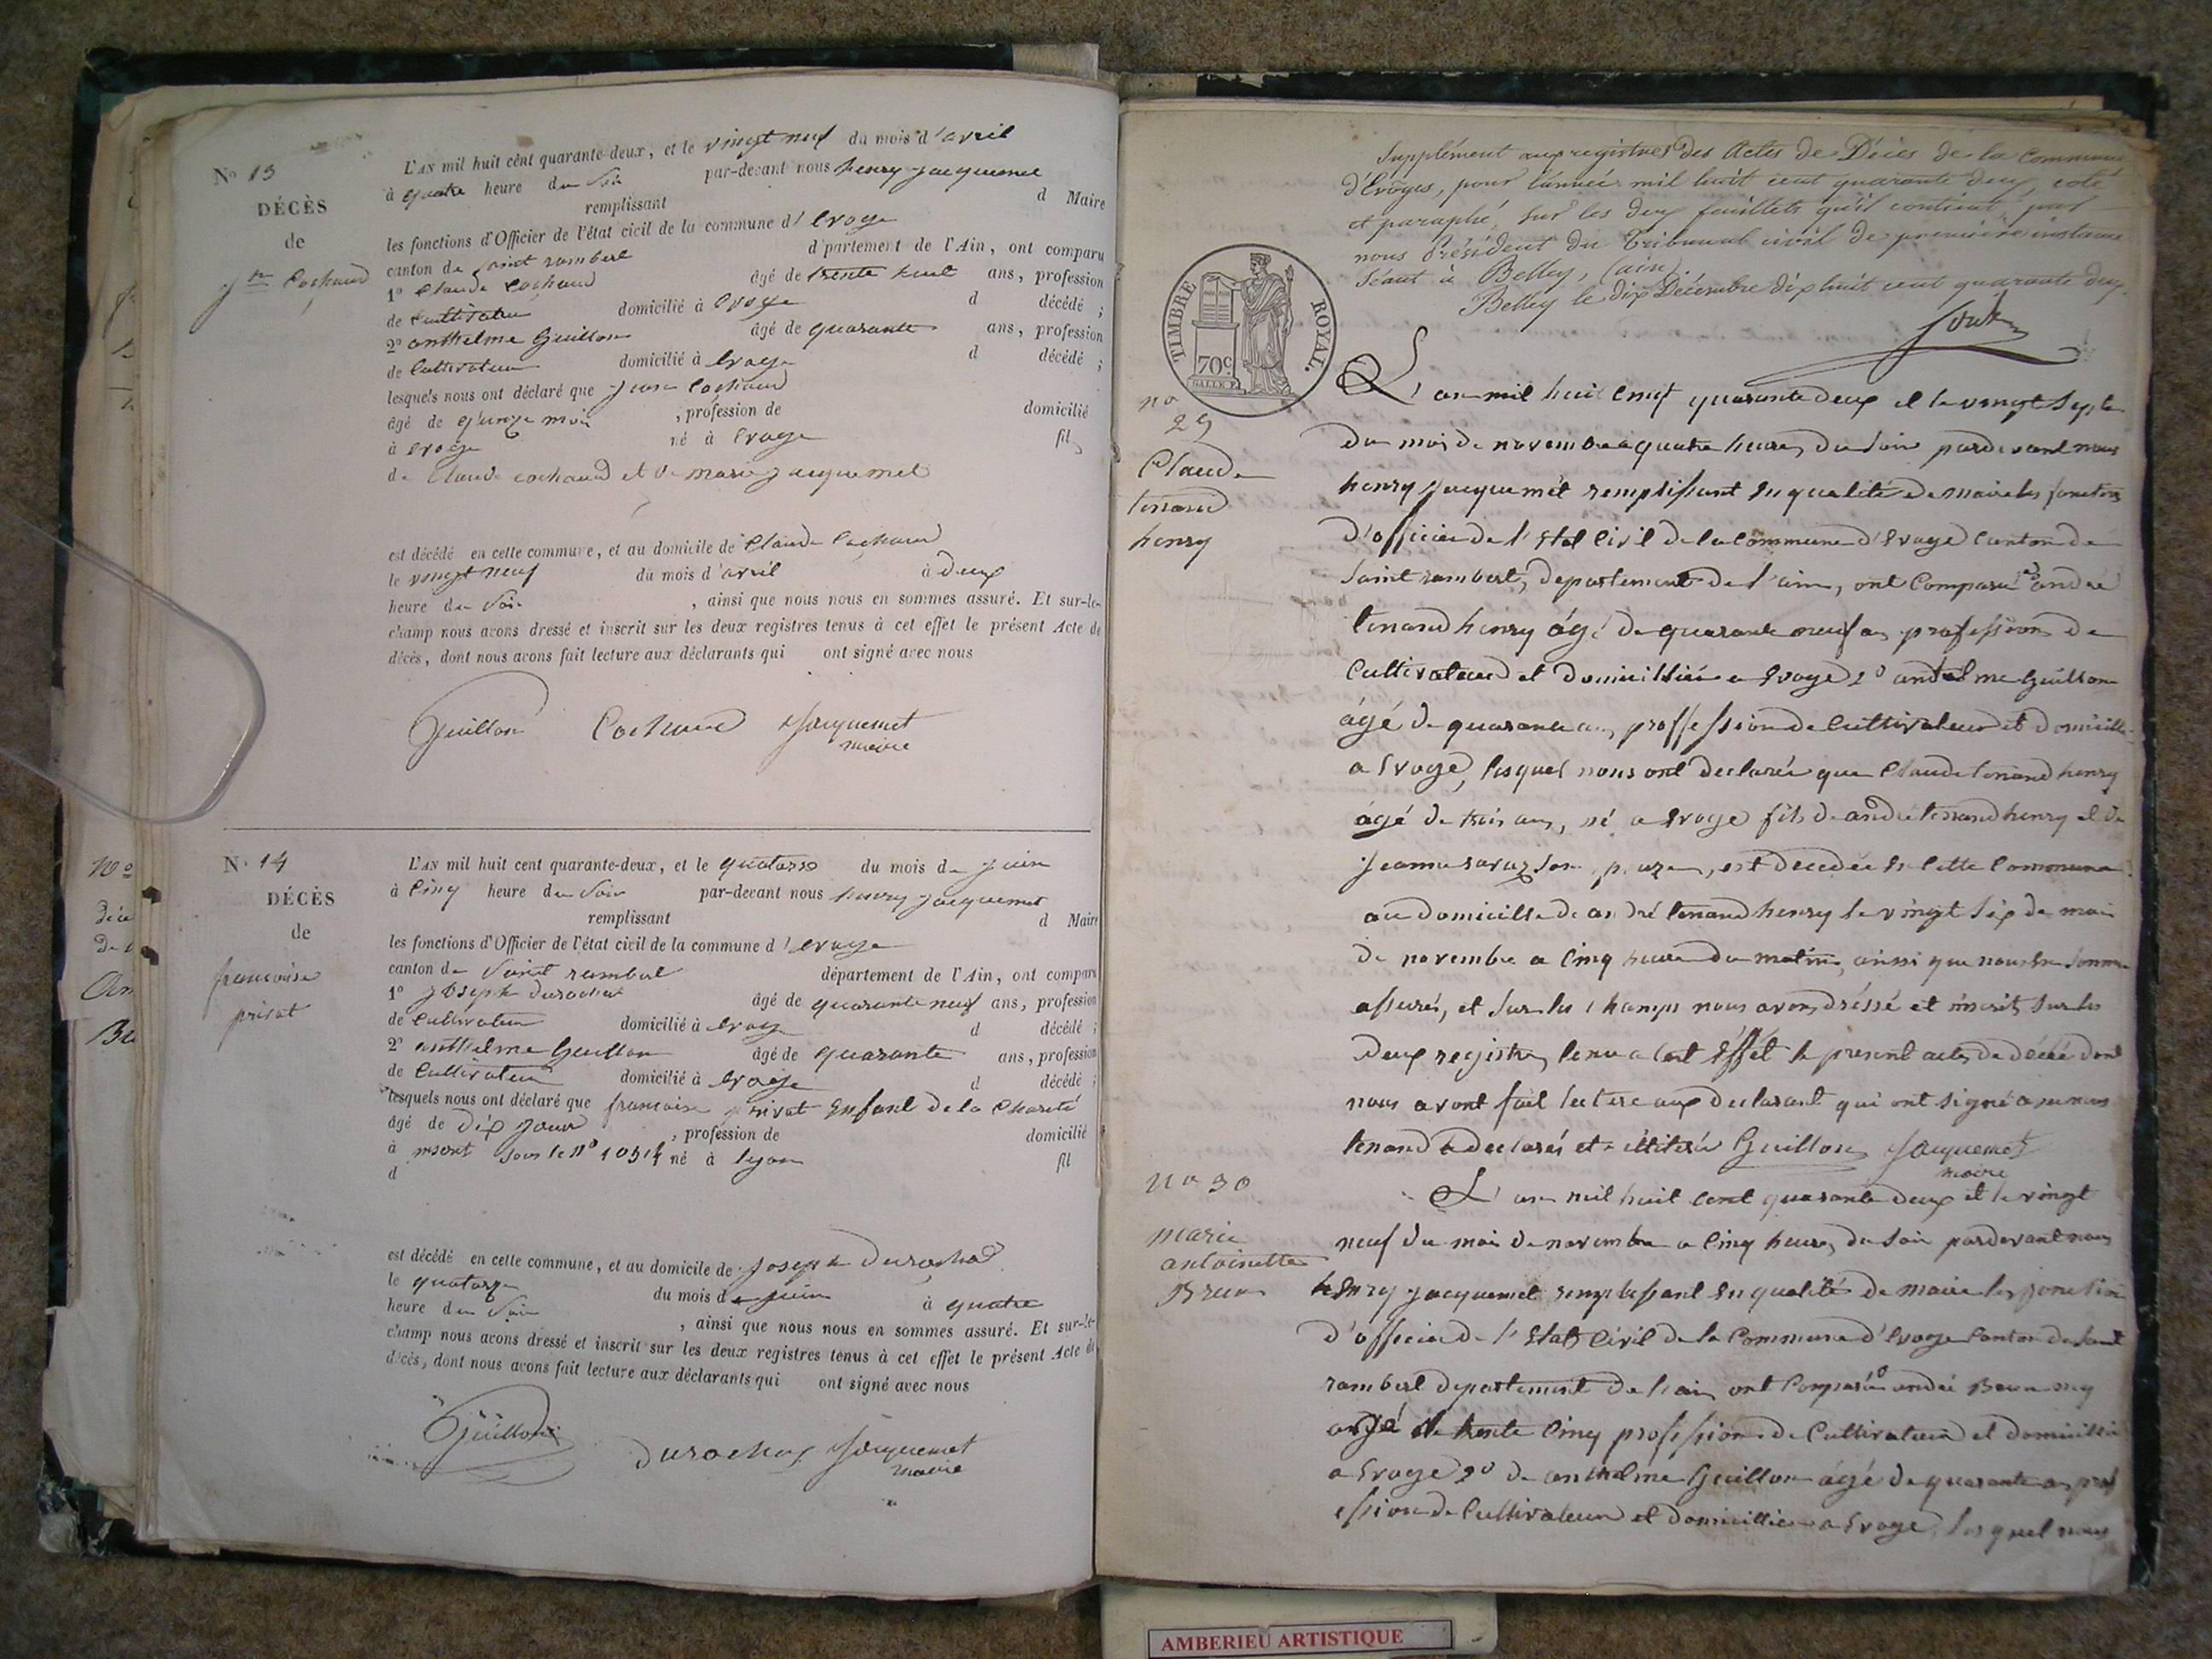 No 13
DÉCÈS
de
jne Cochaud
L'AN mil huit cent quarante-deux, et le vingt neuf du mois d'avril
à quatre heure du Soir par-devant nous henry jacquemet
remplissant d Maire
les fonctions d'Officier de l'état civil de la commune d'Evoge
canton de saint rambert département de l'Ain, ont comparu
1° Claude Cochaud âgé de trente huit ans, profession
de Cultivateur domicilié à Evoge d décédé ;
2° anthelme Guillon âgé de quarante ans, profession
de Cultivateur domicilié à Evoge d décédé ;
lesquels nous ont déclaré que Cochaud
âgé de quinze mois , profession de domicilié
à Evoge né à Evoge fils
de Claude cochaud et de marie jacquemet
est décédé en cette commune, et au domicile de Claude Cochaud
le vingt neuf du mois d'avril à deux
heure du Soir , ainsi que nous nous en sommes assuré. Et sur-le-
champ nous avons dressé et inscrit sur les deux registres tenus à cet effet le présent Acte de
décès, dont nous avons fait lecture aux déclarants qui ont signé avec nous
Guillon Cochaud Jacquemet
maire
N° 14
DÉCÈS
de
francoise
privat
L'AN mil huit cent quarante-deux, et le quatorze du mois de juin
à Cinq heure du Soir par-devant nous henry jacquemet
remplissant d Maire
les fonctions d'Officier de l'état civil de la commune d'Evoge
canton de Saint rambert département de l'Ain, ont comparu
1° joseph durochat âgé de quarante neuf ans, profession
de Cultivateur domicilié à Evoge d décédé ;
2° anthelme Guillon âgé de quarante ans, profession
de Cultivateur domicilié à Evoge d décédé ;
lesquels nous ont déclaré que francoise privat Enfant de la Charité
âgé de dix jour , profession de domicilié
à inscrit sous le n° né à lyon fil
d
est décédé en cette commune, et au domicile de joseph Durochat
le quatorze du mois de juin à quatre
heure du Soir , ainsi que nous nous en sommes assuré. Et sur-le-
champ nous avons dressé et inscrit sur les deux registres tenus à cet effet le présent Acte de
décès, dont nous avons fait lecture aux déclarants qui ont signé avec nous
Guillon
durochat Jacquemet
maire
Supplément aux registres des Actes de Décès de la Commune
d'Evoges, pour l'année mil huit cent quarante deux, coté
et paraphé sur les deux feuillets qu'il contient, par
nous Président du Tribunal civil de première instance
séant à Belley, (ain)
Belley le dix Décembre dix huit cent quarante deux.
TIMBRE ROYAL.
70c.
no
29
Claude
tenand
henry
L'an mil huit Cent quarante deux et le vingt Sept
du mois de novembre a quatre heures du Soir pardevant nous
henry jacquemet remplissant En qualité de maire les fonctions
d'officier de l'Etat Civil de la Commune d'Evoge Canton de
Saint rambert, departement de l'ain, ont Comparu andré
tenand henry âgé de quarante neuf ans profession de
Cultivateur et domicillié a Evoge 2° anthelme Guillon
âgé de quarante ans, proffession de Cultivateur et domicillié
a Evoge, lesquel nous ont declaré que Claude tenand henry
âgé de trois ans, né a Evoge fils de andré tenand henry et de
jeanne , est decedée En Cette Commune
au domicille de andré tenand henry le vingt Six de mois
de novembre a Cinq heure du matin, ainsi que nous En Somme
assurés, et Sur les Champs nous avons dréssé et inscrit Sur les
deux registres tenu a Cet Effét le present actes de décéé dont
nous avont fait lecture aux declarant qui ont signé avec nous
tenand a declarés et illiteré Guillon Jacquemet
maire
no 30
marie
antoinette
Brun
L'an mil huit Cent quarante deux et le vingt
neuf du mois de novembre a Cinq heures du Soir pardevant nous
henry jacquemet remplissant En qualité de maire les fonction
d'officier de l'Etat Civil de la Commune d'Evoge Canton de Saint
rambert departement de l'ain ont Comparu andré Brun
agé de trente Cinq profession de Cultivateur et domicillié
a Evoge 2° de anthelme Guillon âgé de quarante ans prof
ession de Cultivateur et domicillié a Evoge lesquel nous
AMBERIEU ARTISTIQUE